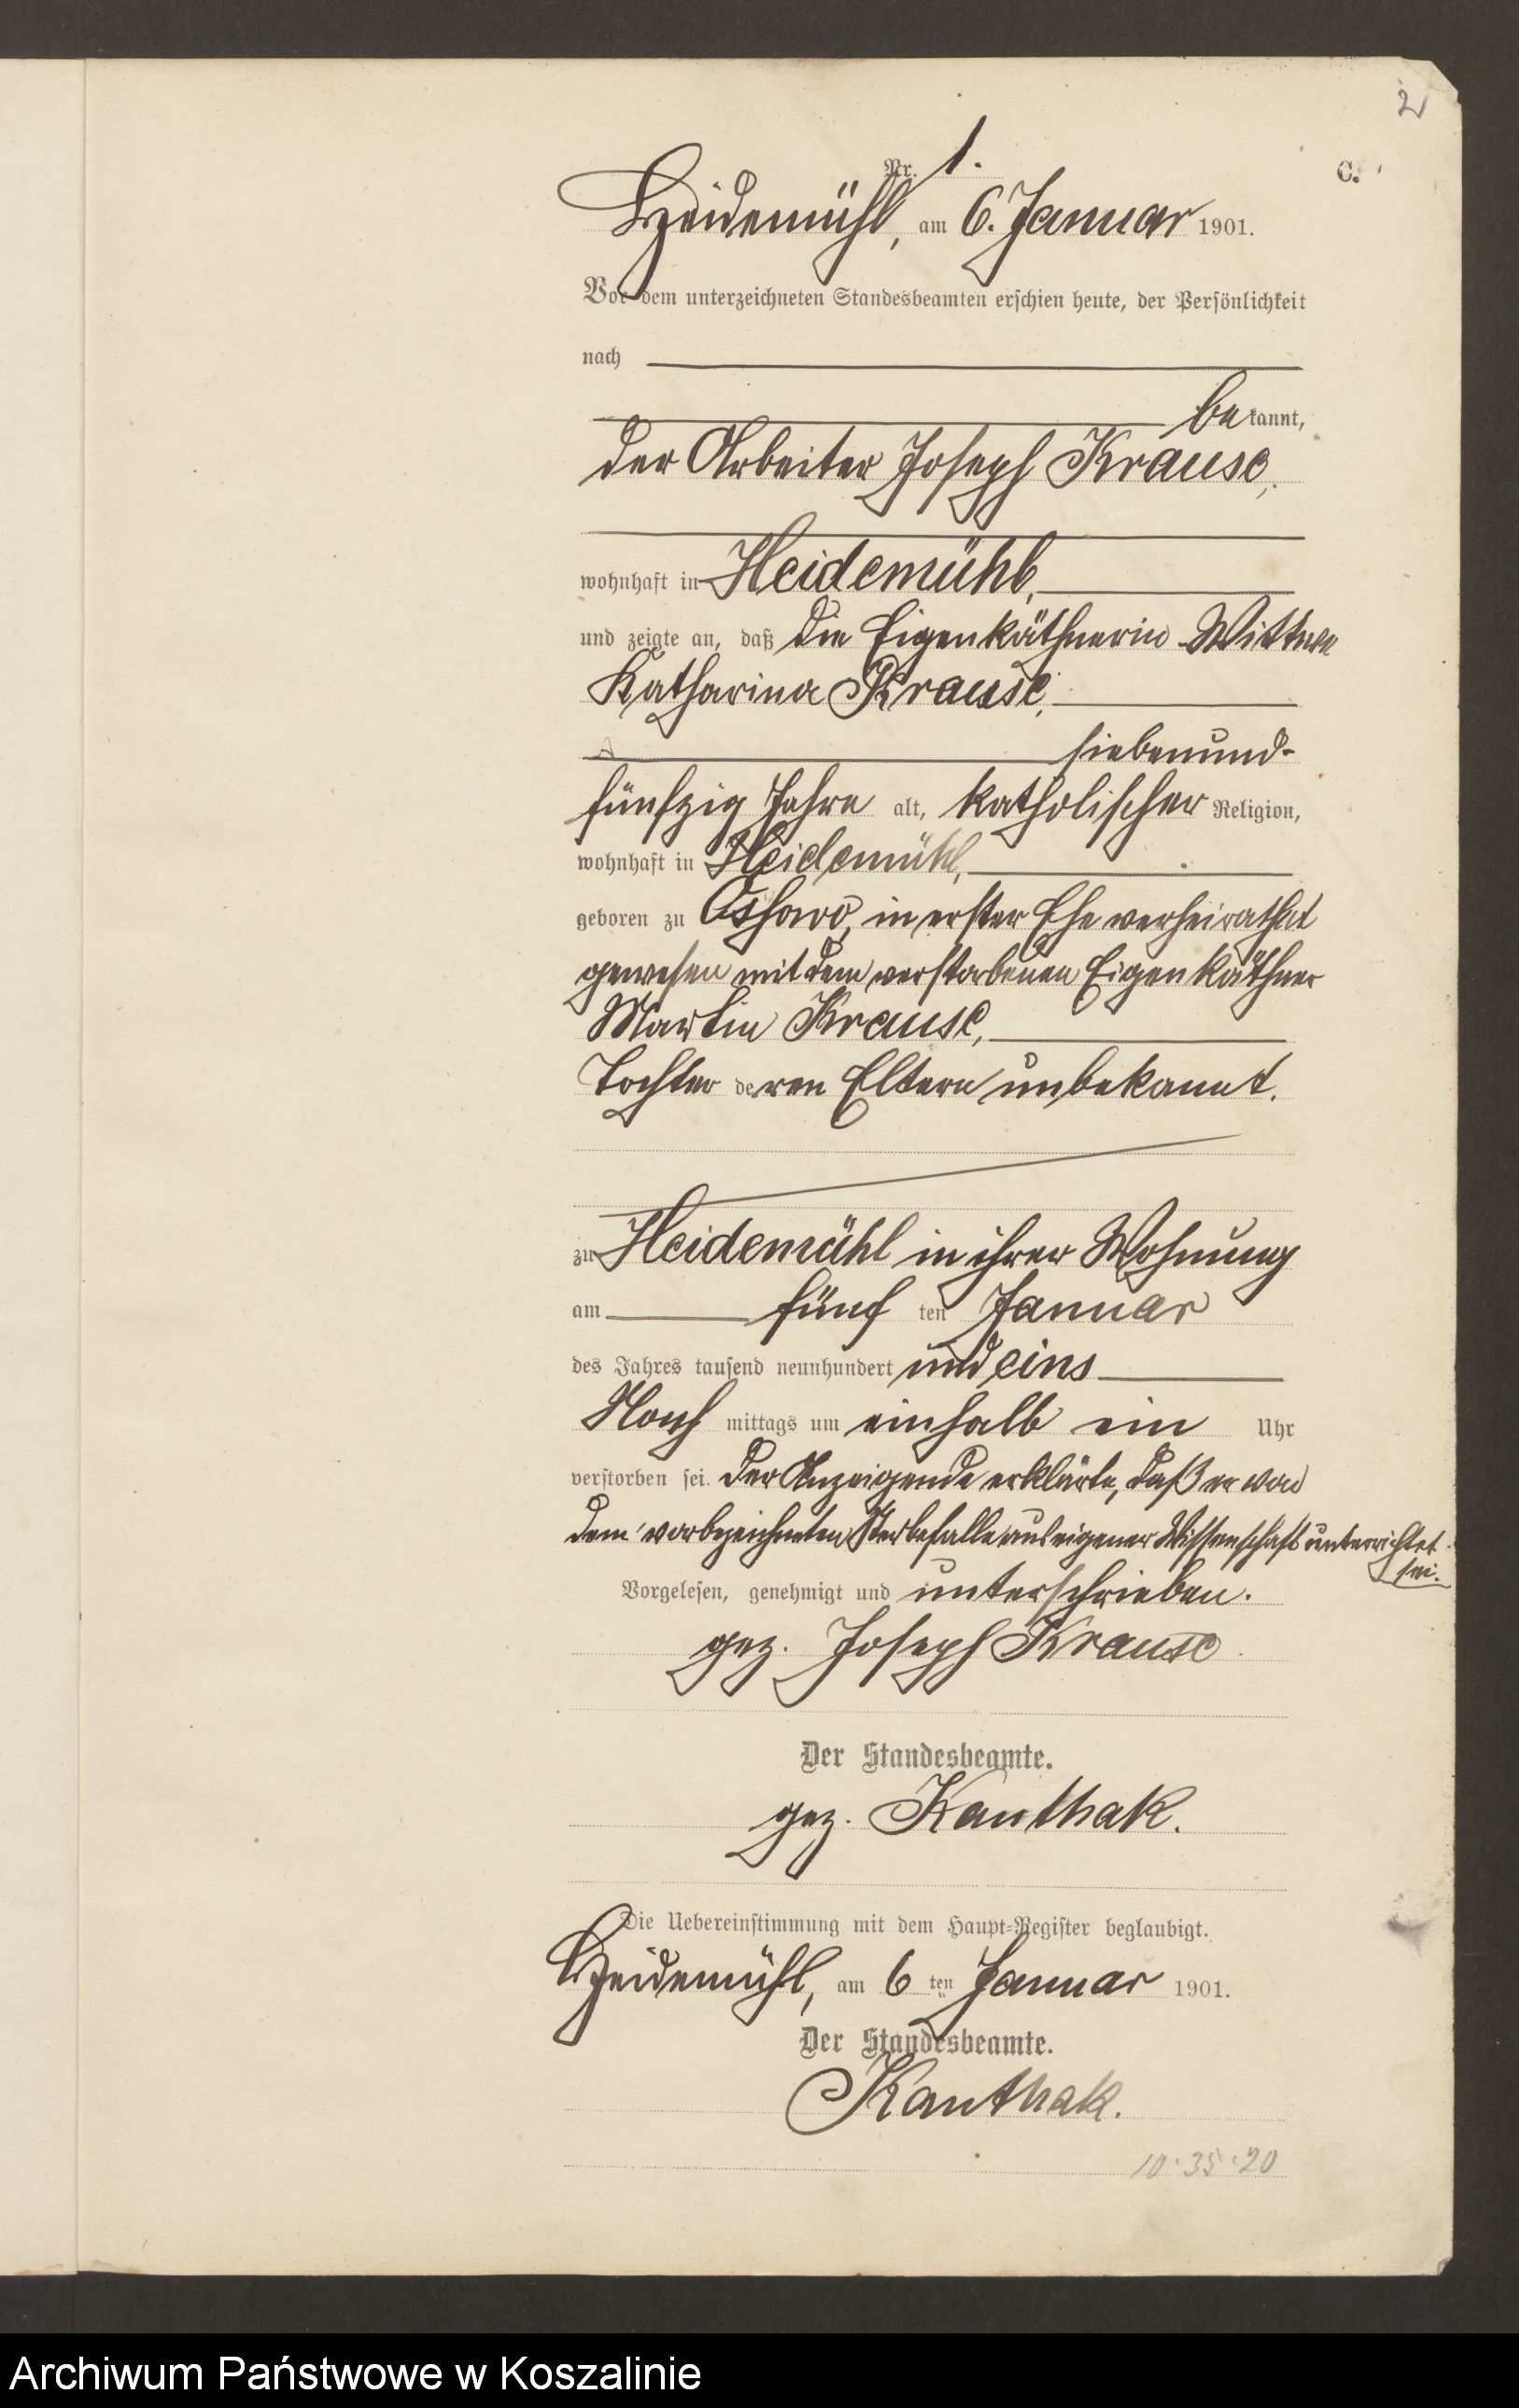 2
Nr. 1.
C.
Heidemühl, am 6. Januar 1901.
Vor dem unterzeichneten Standesbeamten erschien heute, der Persönlichkeit
nach
bekannt,
der Arbeiter Joseph Krause,
wohnhaft in Heidemühl,
und zeigte an, daß die Eigenkäthnerin Wittwe
Katharina Krause,
siebenund-
fünfzig Jahre alt, katholischer Religion,
wohnhaft in Heidemühl,
geboren zu in erster Ehe verheirathet
gewesen mit dem verstorbenen Eigenkäthner
Martin Krause,
Tochter deren Eltern unbekannt.
zu Heidemühl in ihrer Wohnung
am fünften Januar
des Jahres tausend neunhundert und eins
Nachmittags um einhalb ein Uhr
verstorben sei. Der Anzeigende erklärte, daß er von
dem vorbezeichneten Sterbefalle aus eigener Wissenschaft unterrichtet
sei.
Vorgelesen, genehmigt und unterschrieben.
gez. Joseph Krause
Der Standesbeamte.
gez. Kanthak.
Die Uebereinstimmung mit dem Haupt-Register beglaubigt.
Heidemühl, am 6ten Januar 1901.
Der Standesbeamte.
Kanthak.
10.35.20
Archiwum Państwowe w Koszalinie